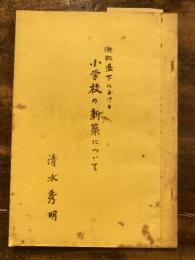 浜松県下における
小学校の新築について
清水秀明